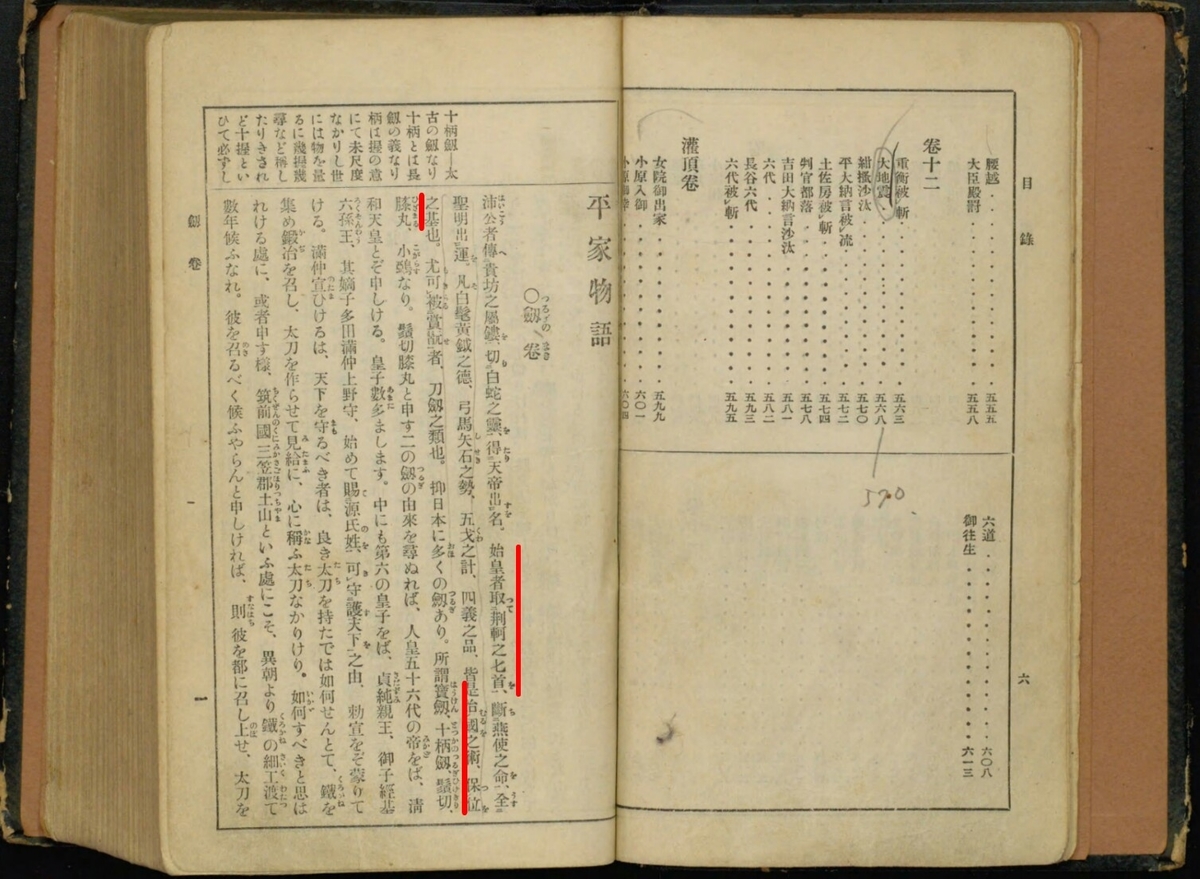 目錄
六
腰越・・・・・・・・・・五五五
大臣殿誅・・・・・・・・・・五五八
卷十二
重衡被斬・・・・・・・・・・五六三
大地震・・・・・・・・・・五六八
紺搔沙汰・・・・・・・・・・五七〇
平大納言被流・・・・・・・・・・五七二
土佐房被斬・・・・・・・・・・五七四
判官都落・・・・・・・・・・五七八
吉田大納言沙汰・・・・・・・・・・五八一
六代・・・・・・・・・・五八二
長谷六代・・・・・・・・・・五九三
六代被斬・・・・・・・・・・五九五
灌頂卷
女院御出家・・・・・・・・・・五九九
小原入御・・・・・・・・・・六〇一
小原御幸・・・・・・・・・・六〇四
六道・・・・・・・・・・六〇八
御往生・・・・・・・・・・六一三
570
平家物語
〇劔卷
沛公者傳貴坊之屬鏤、切白蛇之靈、得天帝出名。始皇者取荆軻之匕首、斷燕使之命、全
聖明出運、凡白髦黃鉞之德、弓馬矢石之勢、五戈之計、四義之品、皆是治國之術、保位
之基也。尤可被賞翫者、刀劔之類也。抑日本に多くの劔あり。所謂寶劔、十柄劔、鬚切、
膝丸、小鴉なり。鬚切膝丸と申す二の劔の由來を尋ぬれば、人皇五十六代の帝をば、淸
和天皇とぞ申しける。皇子數多まします。中にも第六の皇子をば、貞純親王、御子經基
六孫王、其嫡子多田滿仲上野守、始めて賜源氏姓、可守護天下之由、勅宣をぞ蒙りて
ける。滿仲宣ひけるは、天下を守るべき者は、良き太刀を持たでは如何せんとて、鐵を
集め鍛冶を召し、太刀を作らせて見給に、心に稱ふ太刀なかりけり。如何すべきと思は
れける處に、或者申す樣、筑前國三笠郡土山といふ處にこそ、異朝より鐵の細工渡て
數年候ふなれ。彼を召るべく候ふやらんと申しければ、則彼を都に召し上せ、太刀を
十柄劔―太
古の劔なり
十柄とは長
劔の義なり
柄は握の意
にて未尺度
なかりし世
には物を量
るに幾握幾
尋など稱し
たりきされ
ど十握とい
ひて必ずし
劔卷
一